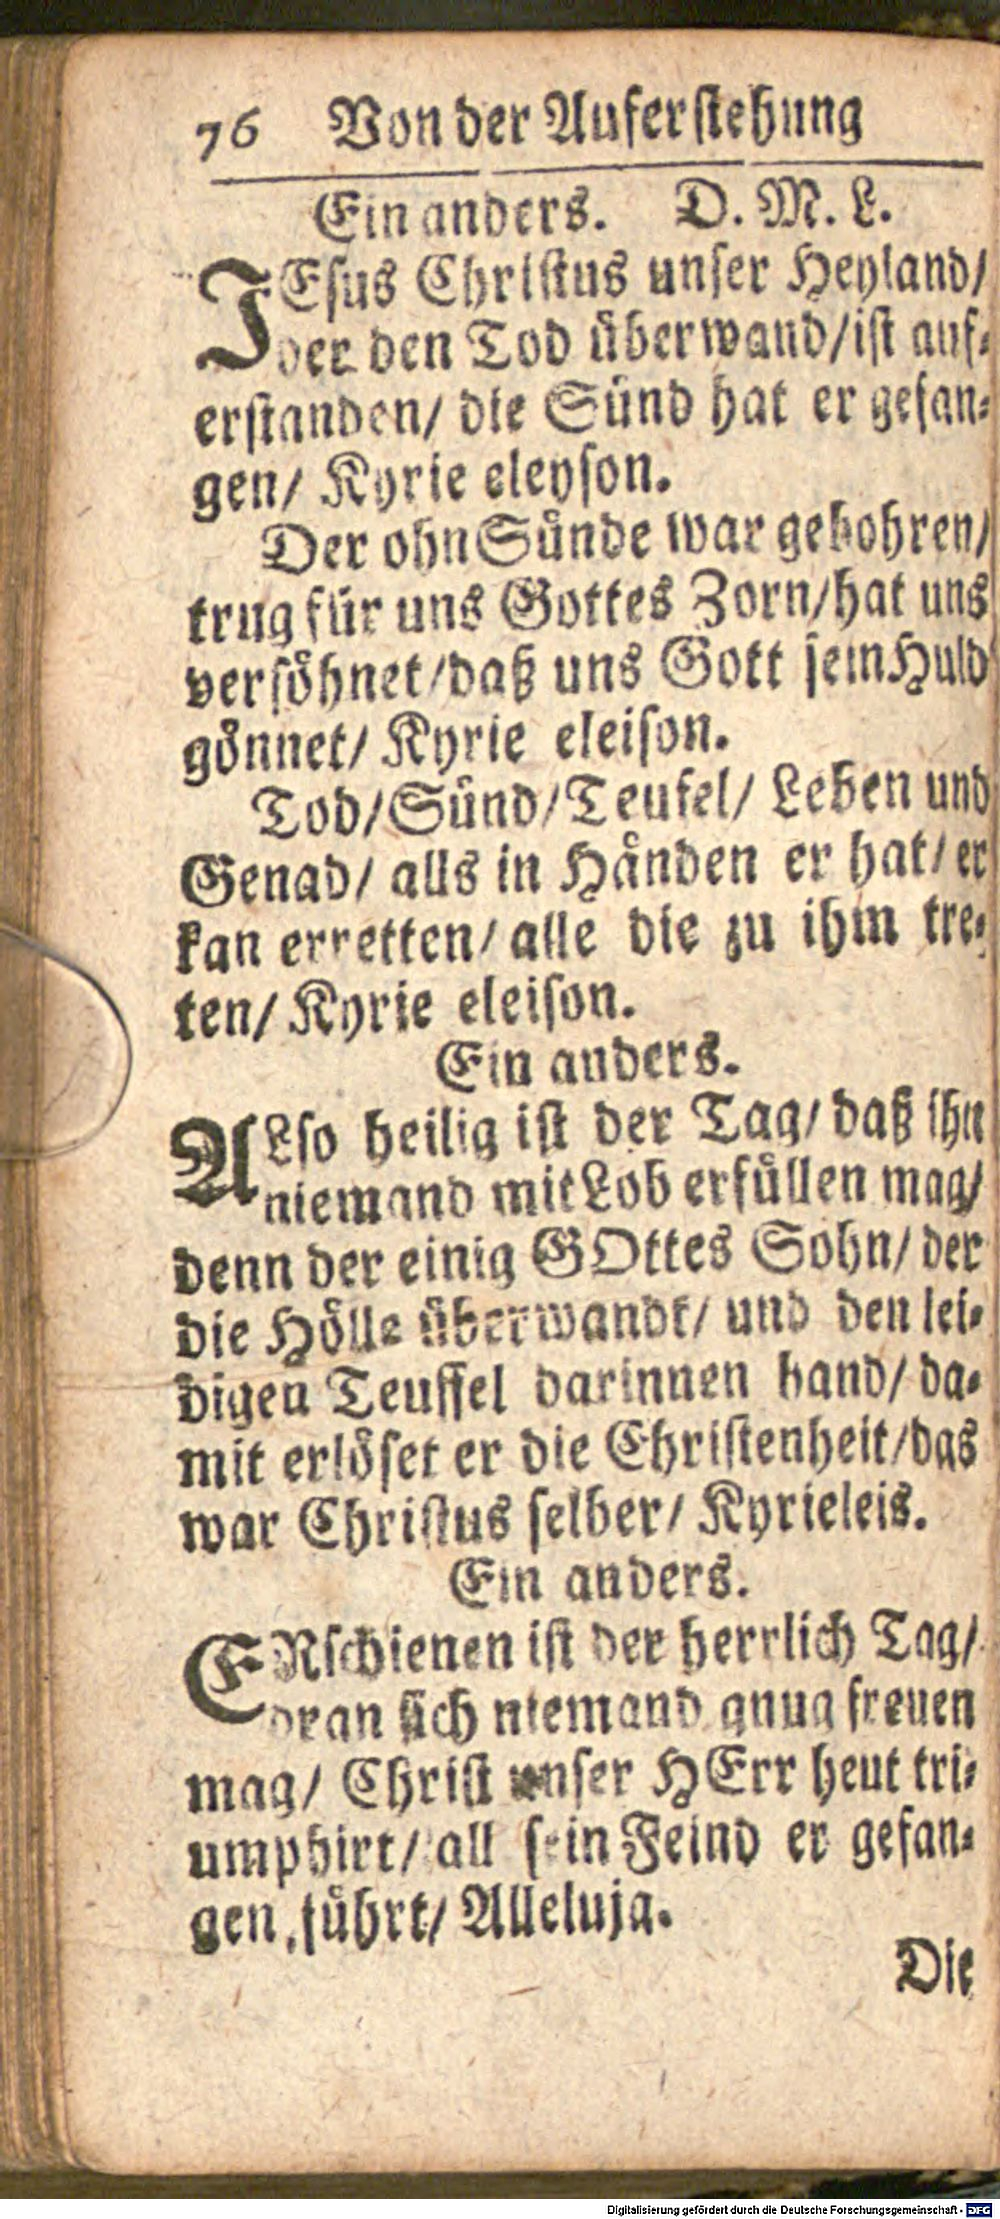 76 Von der Auferstehung
Ein anders. D. M. L.
JEsus Christus unser Heyland/
der den Tod überwand/ist auf-
erstanden/ die Sünd hat er gefan-
gen/ Kyrie eleyson.
Der ohn Sünde war gebohren/
trug für uns Gottes Zorn/hat uns
versöhnet/daß uns Gott sein Huld
gönnet/ Kyrie eleison.
Tod/Sünd/Teufel/ Leben und
Genad/ alls in Händen er hat/ er
kan erretten/ alle die zu ihm tre-
ten/ Kyrie eleison.
Ein anders.
ALso heilig ist der Tag/ daß ihn
niemand mit Lob erfüllen mag/
denn der einig GOttes Sohn/ der
die Hölle überwandt/ und den lei-
digen Teuffel darinnen band/ da-
mit erlöset er die Christenheit/das
war Christus selber/ Kyrieleis.
Ein anders.
ERschienen ist der herrlich Tag/
dran sich niemand gnug freuen
mag/ Christ unser HErr heut tri-
umphirt/ all sein Feind er gefan-
gen führt/ Alleluja.
Die
Digitalisierung gefördert durch die Deutsche Forschungsgemeinschaft - DFG